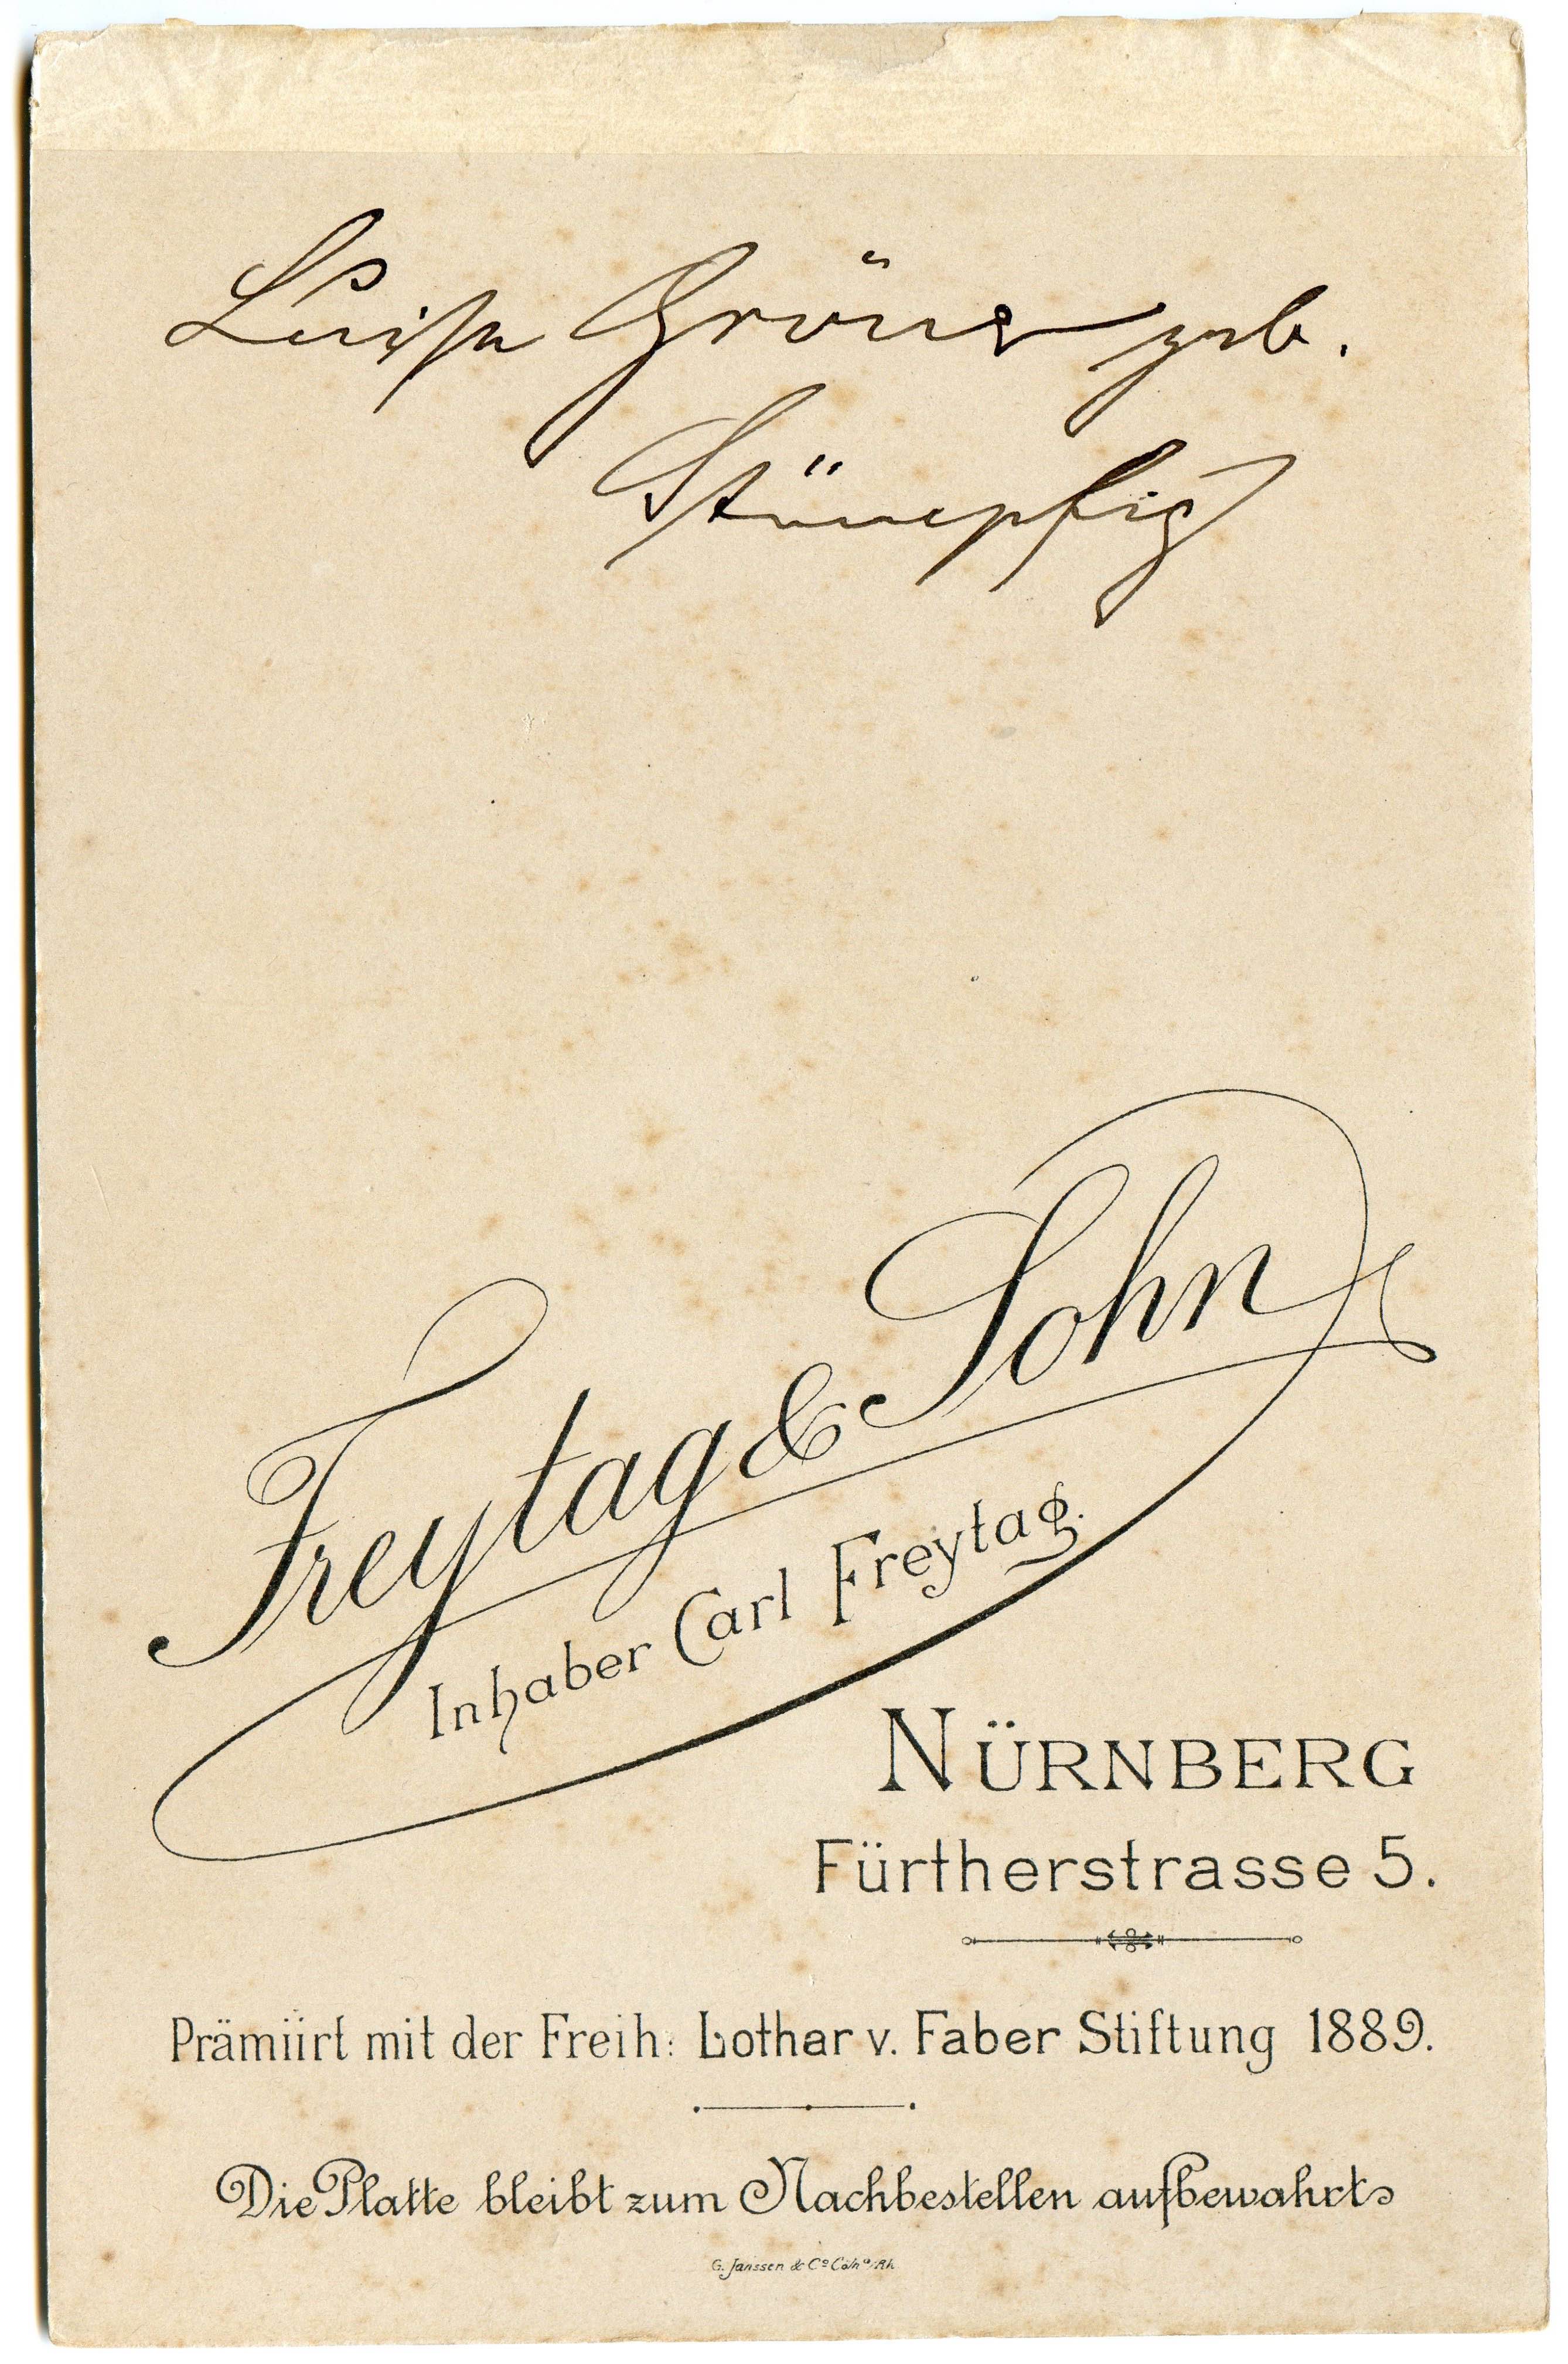 Luise Gröner geb.
Stümpfig
Freytag & Sohn
Inhaber Carl Freytag.
NÜRNBERG
Fürtherstrasse 5.
Prämiirt mit der Freih: Lothar v. Faber Stiftung 1889.
Die Platte bleibt zum Nachbestellen aufbewahrt
G. Janssen & Co Cöln a/Rh.